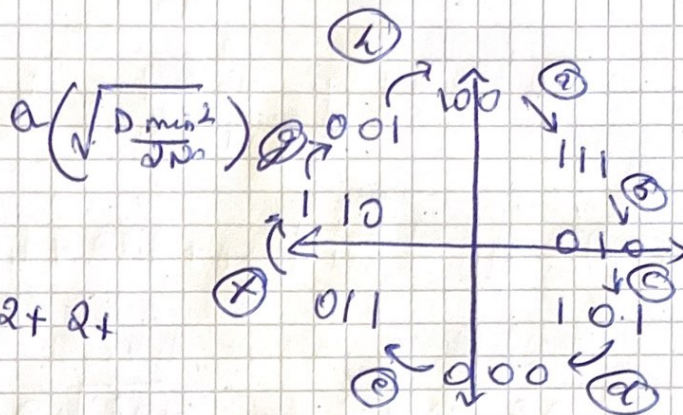 h
Q(√(Dmin²/2N₀))
g
001
100
a
111
b
110
010
c
f
011
101
2+ 2+
e
000
d